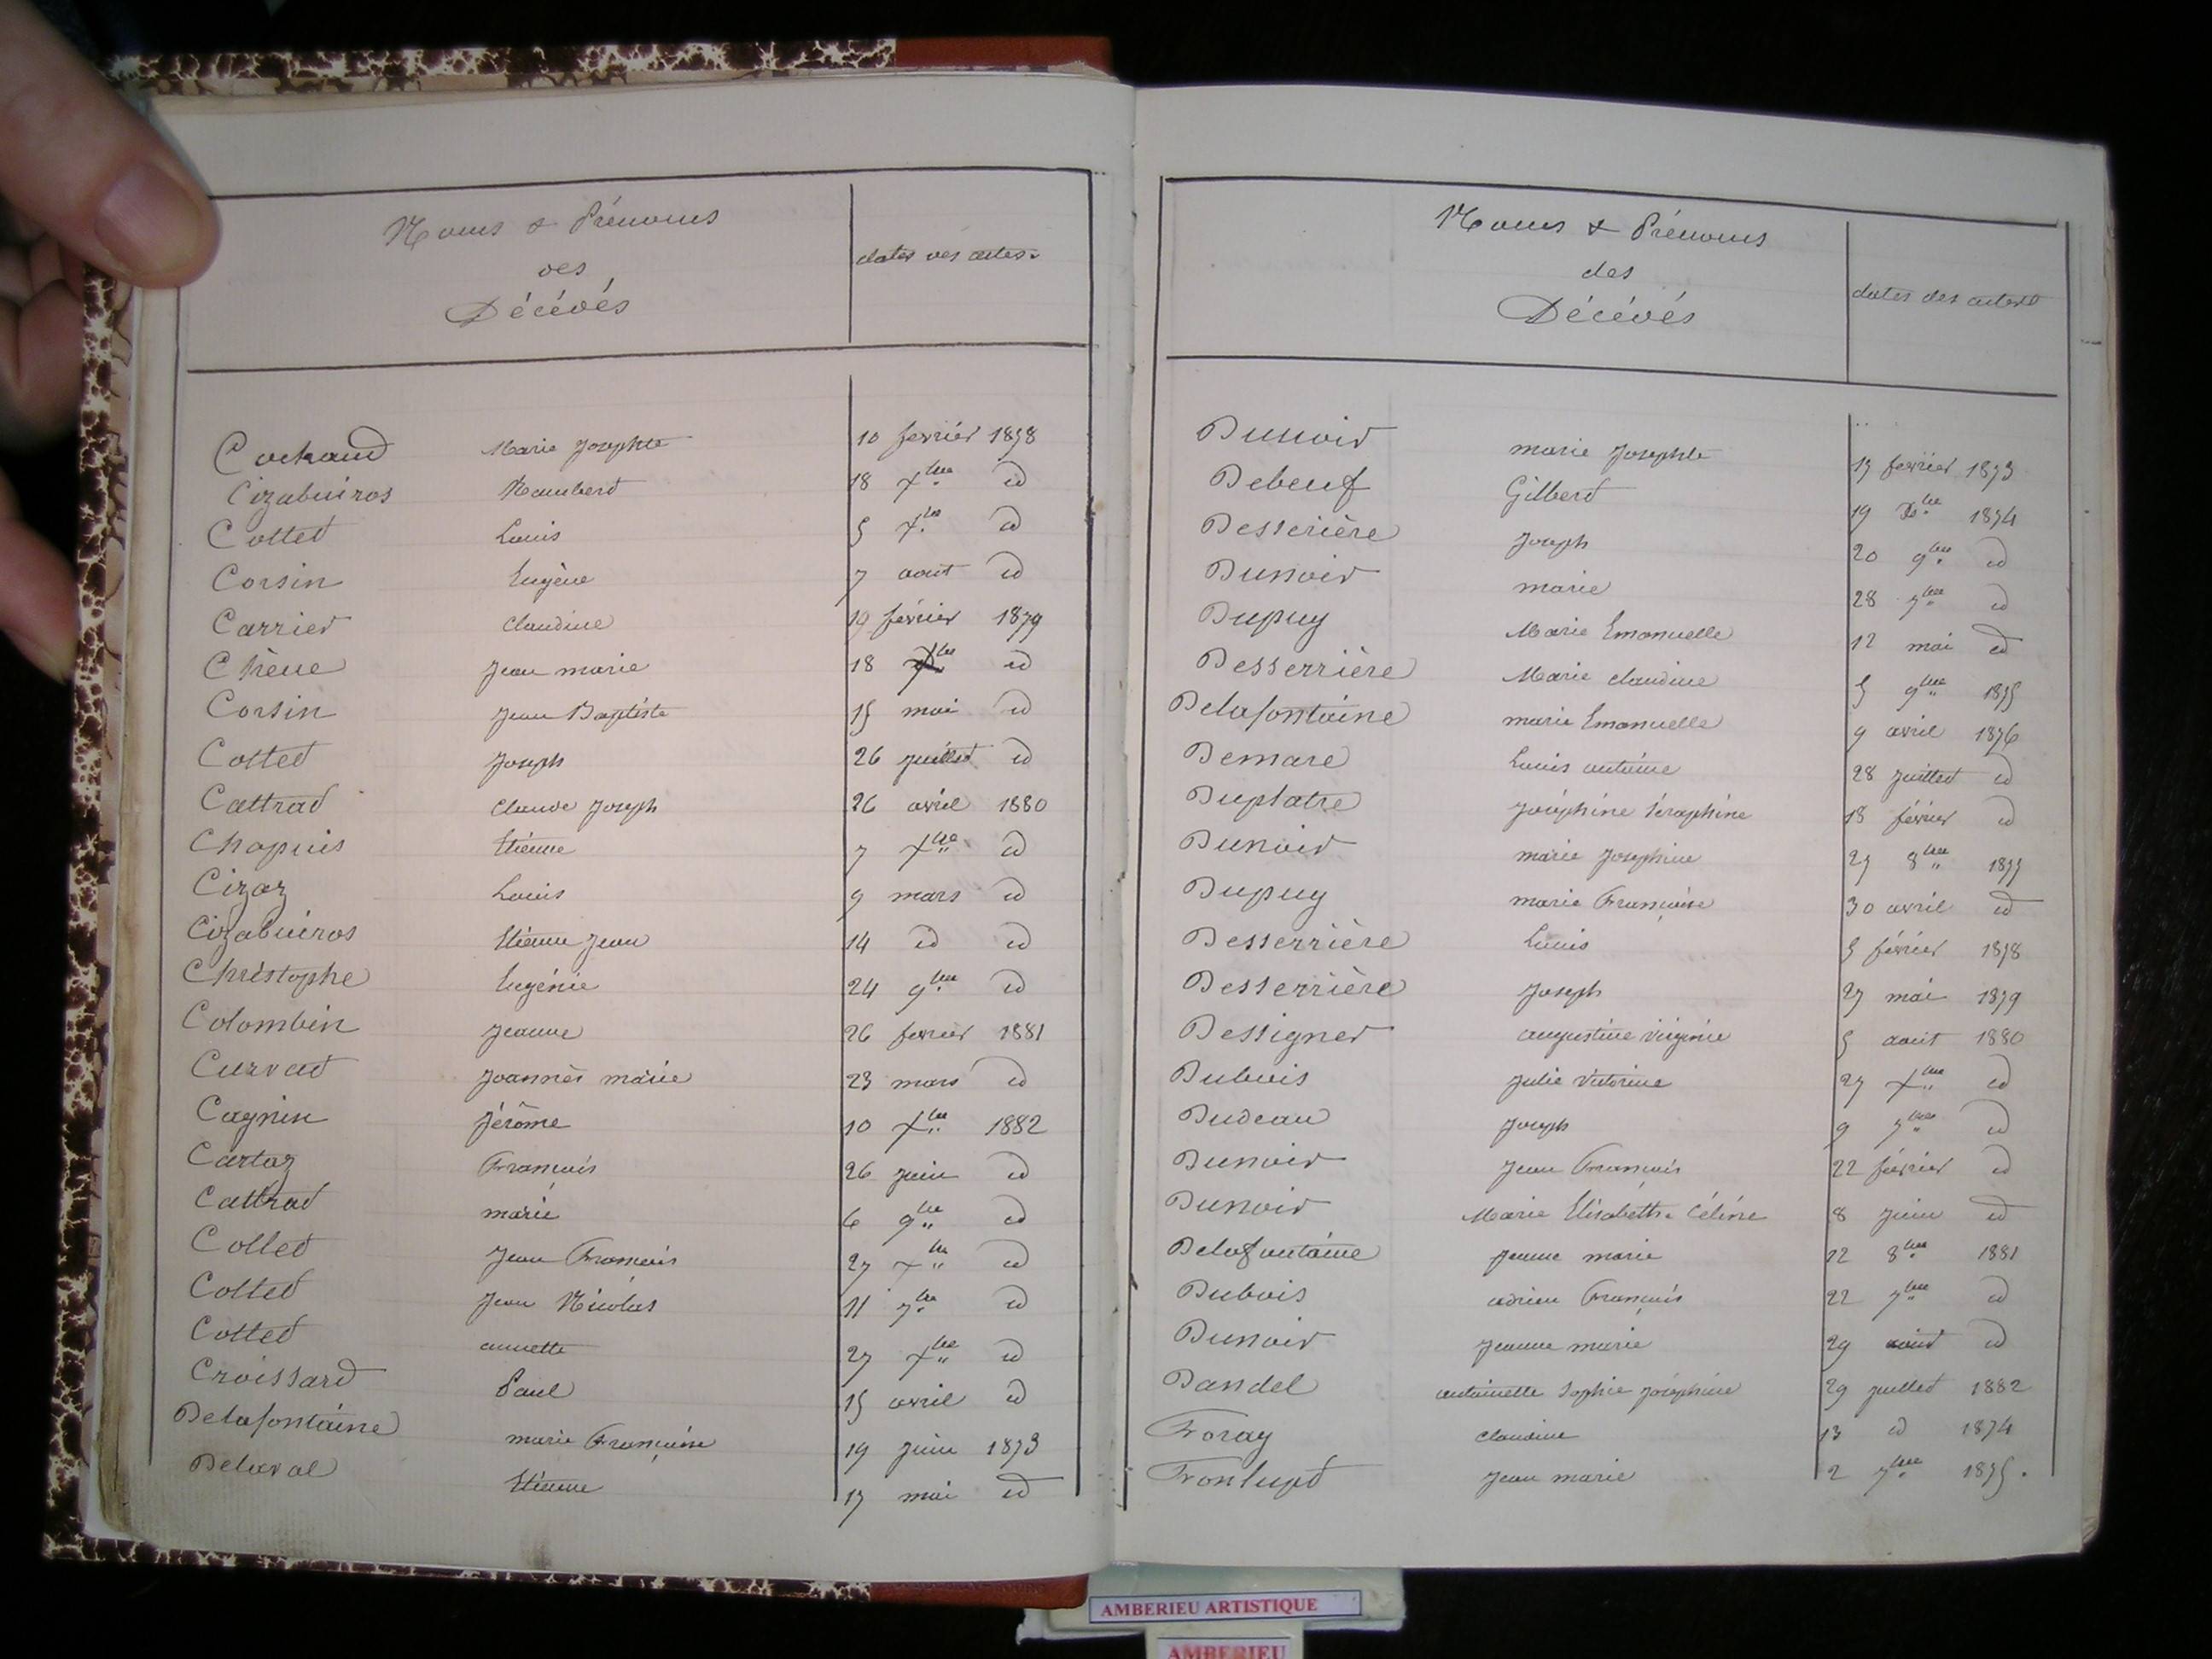 Noms & Prénoms
des
Décédés
dates des actes.
Cochaud Marie Josephte 10 fevrier 1878
Cizabuiros Rambert 18 Xbre id
Cottet Louis 5 Xbre id
Corsin Eugène 7 aout id
Carrier Claudine 19 février 1879
Chêne Jean marie 18 Xbre id
Corsin Jean Baptiste 15 mai id
Cottet Joseph 26 juillet id
Cattrat Claude Joseph 26 avril 1880
Chapuis Etienne 7 Xbre id
Cizaz Louis 9 mars id
Cizabuiros Etienne Jean 14 id id
Christophe Eugénie 24 9bre id
Colombin Jeanne 26 fevrier 1881
Curvat Joannès marie 23 mars id
Cagnin Jérôme 10 Xbre 1882
Cartaz François 26 juin id
Cattrat marie 6 9bre id
Collet Jean François 27 Xbre id
Cottet Jean Nicolas 11 7bre id
Cottet annette 27 Xbre id
Croissard Paul 15 avril id
Delafontaine marie Françoise 19 juin 1873
Delaval Etienne 17 mai id
Noms & Prénoms
des
Décédés
dates des actes
Dunoir marie Josephte 17 fevrier 1873
Debeuf Gilbert 19 Xbre 1874
Desserière Joseph 20 9bre id
Dunoir marie 28 7bre id
Dupuy Marie Emanuelle 12 mai id
Desserrière Marie claudine 5 9bre 1875
Delafontaine marie Emanuelle 9 avril 1876
Demare Louis antoine 28 juillet id
Duplatre Joséphine Séraphine 18 février id
Dunoir marie Josephine 27 8bre 1877
Dupuy marie Françoise 30 avril id
Desserrière Louis 5 février 1878
Desserrière Joseph 27 mai 1879
Dessigner augustine virginie 5 aout 1880
Dubuis Julie Victorine 27 Xbre id
Dudeau Joseph 9 7bre id
Dunoir Jean François 22 février id
Dunoir Marie Elisabeth Céline 8 juin id
Delafontaine Jeanne marie 12 8bre 1881
Dubois adrien François 22 7bre id
Dunoir Jeanne marie 29 aout id
Dandel antoinette Sophie Joséphine 29 juillet 1882
Foray Claudine 13 id 1874
Fronlupt Jean marie 2 7bre 1875.
AMBERIEU ARTISTIQUE
AMBERIEU